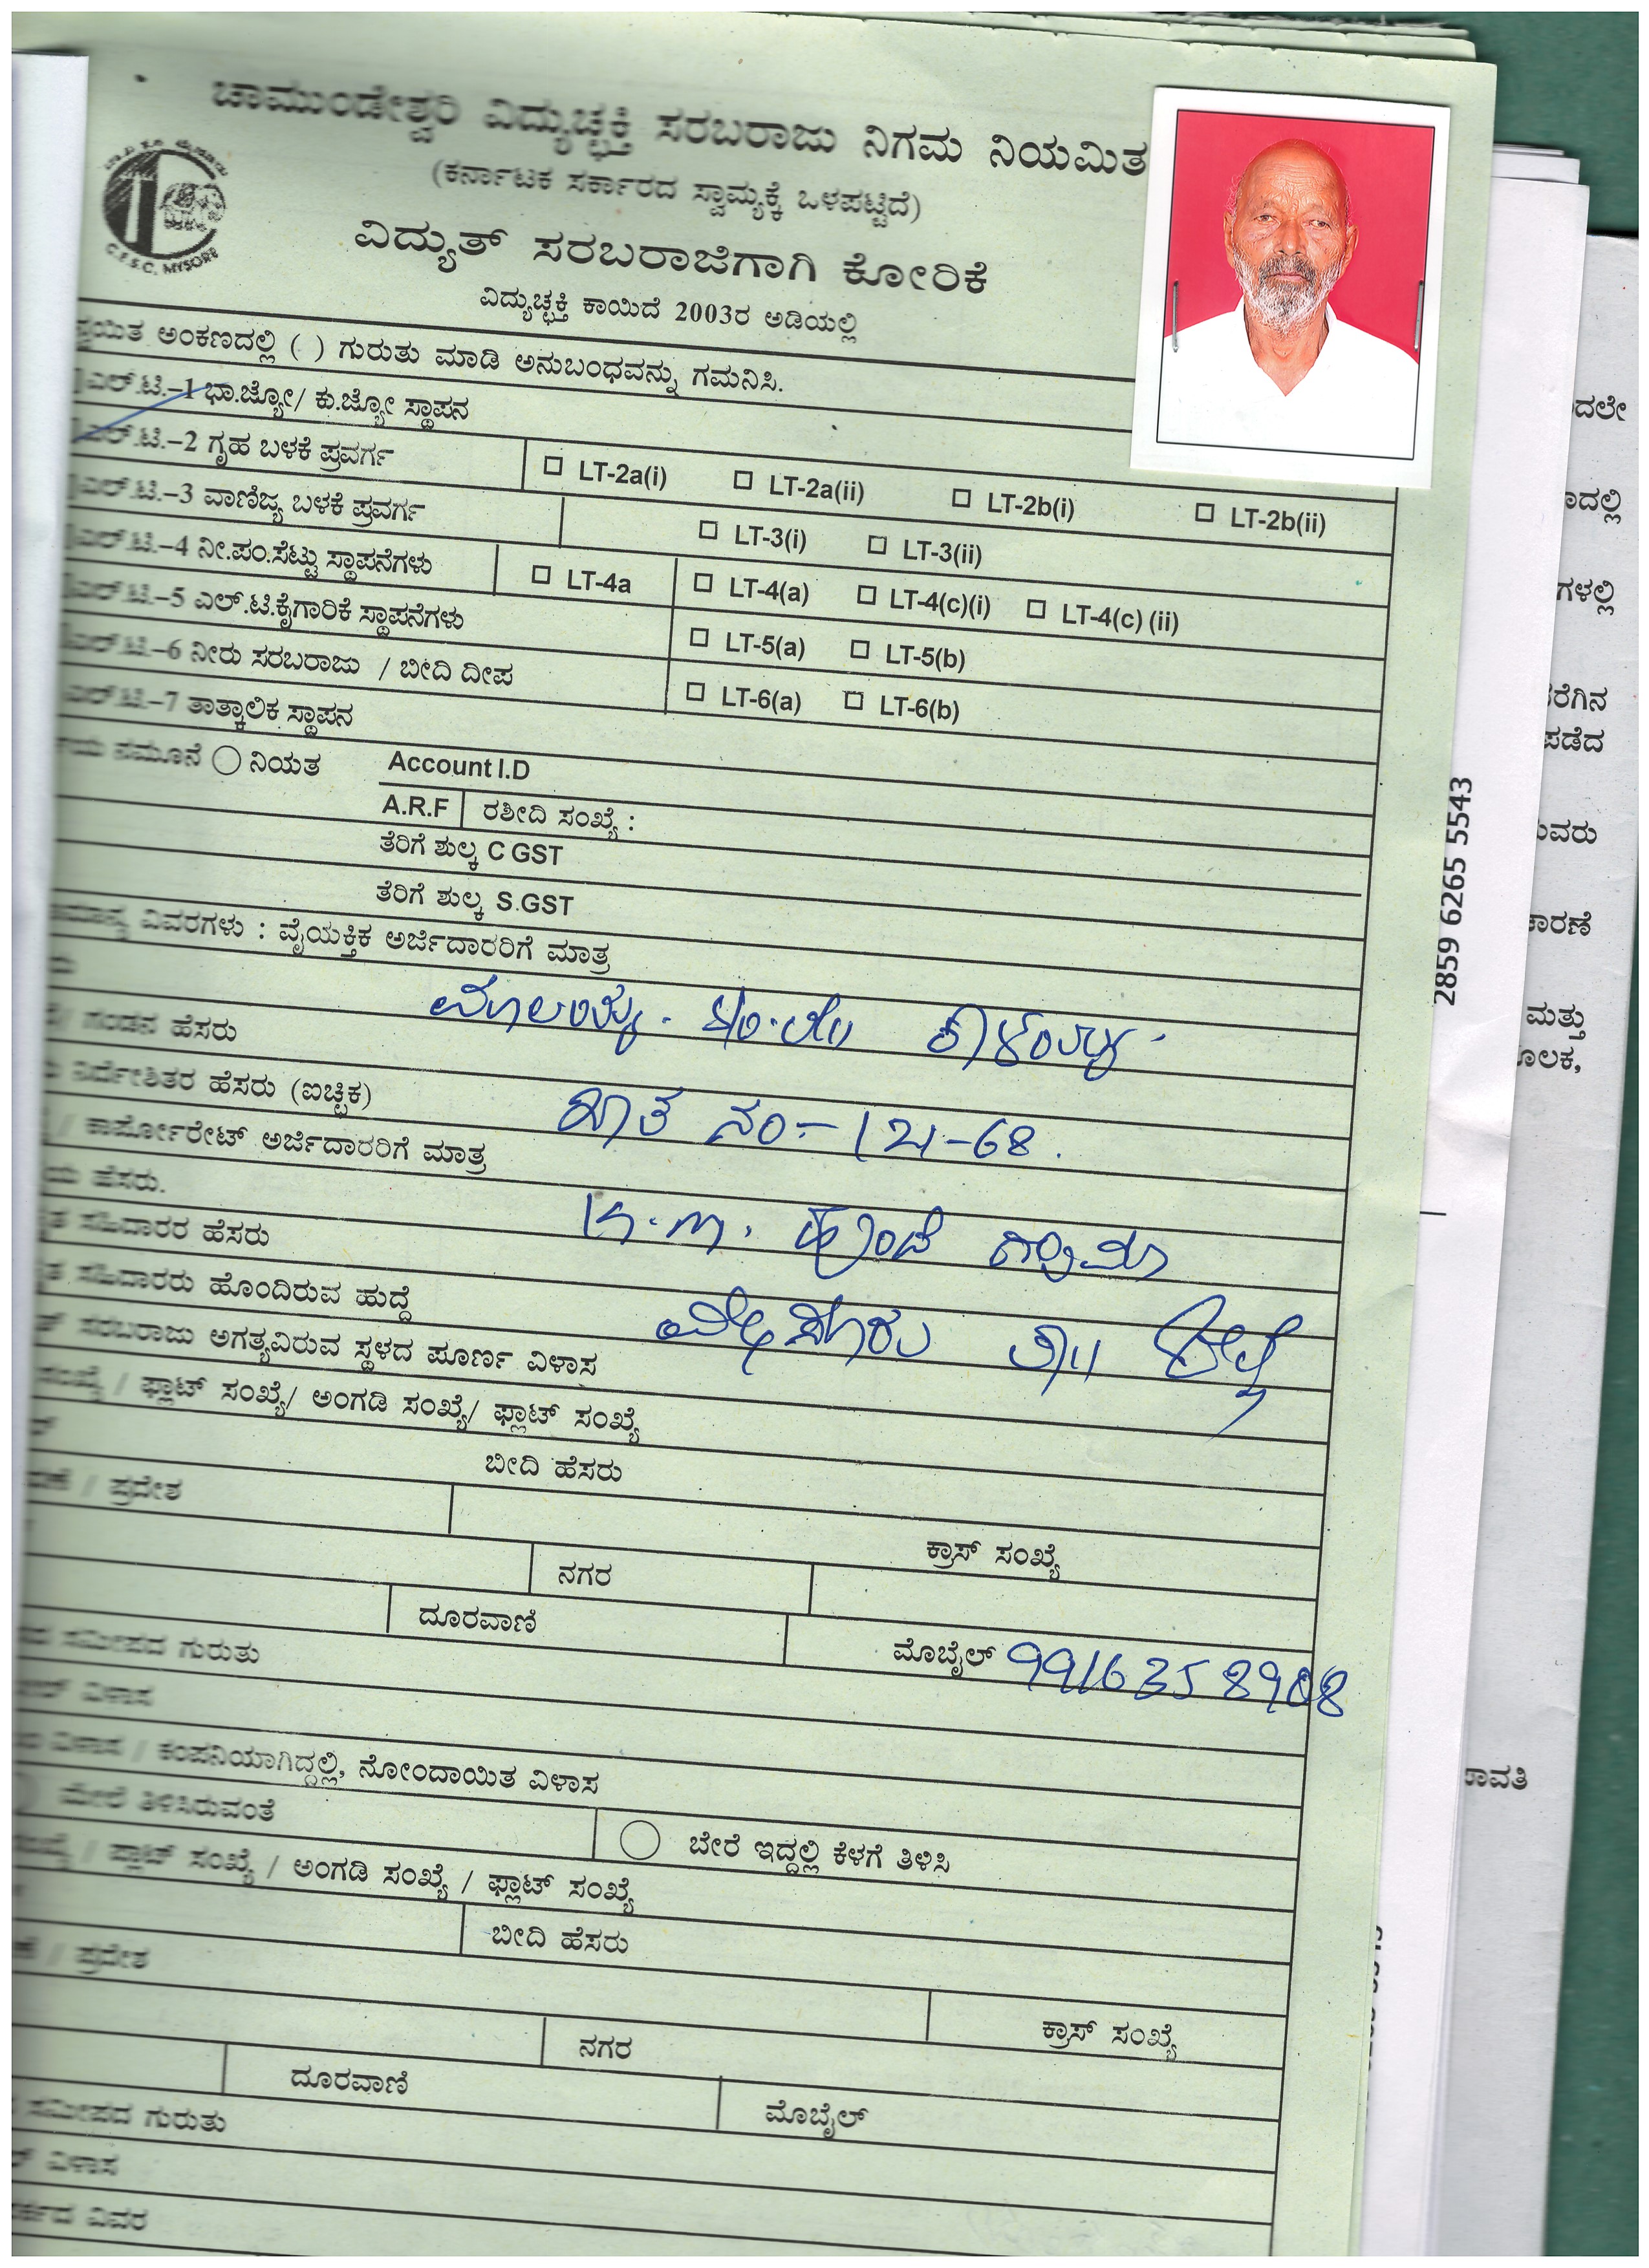 ಚಾಮುಂಡೇಶ್ವರಿ ವಿದ್ಯುಚ್ಛಕ್ತಿ ಸರಬರಾಜು ನಿಗಮ ನಿಯಮಿತ
(ಕರ್ನಾಟಕ ಸರ್ಕಾರದ ಸ್ವಾಮ್ಯಕ್ಕೆ ಒಳಪಟ್ಟಿದೆ)
C.E.S.C. MYSORE
ವಿದ್ಯುತ್ ಸರಬರಾಜಿಗಾಗಿ ಕೋರಿಕೆ
ವಿದ್ಯುಚ್ಛಕ್ತಿ ಕಾಯಿದೆ 2003ರ ಅಡಿಯಲ್ಲಿ
ಅಂಕಣದಲ್ಲಿ ( ) ಗುರುತು ಮಾಡಿ ಅನುಬಂಧವನ್ನು ಗಮನಿಸಿ.
ಎಲ್.ಟಿ.–1 ಭಾ.ಜ್ಯೋ/ ಕು.ಜ್ಯೋ ಸ್ಥಾಪನ
ಎಲ್.ಟಿ.–2 ಗೃಹ ಬಳಕೆ ಪ್ರವರ್ಗ LT-2a(i) LT-2a(ii) LT-2b(i) LT-2b(ii)
ಎಲ್.ಟಿ.–3 ವಾಣಿಜ್ಯ ಬಳಕೆ ಪ್ರವರ್ಗ LT-3(i) LT-3(ii)
ಎಲ್.ಟಿ.–4 ನೀ.ಪಂ.ಸೆಟ್ಟು ಸ್ಥಾಪನೆಗಳು LT-4a LT-4(a) LT-4(c)(i) LT-4(c) (ii)
ಎಲ್.ಟಿ.–5 ಎಲ್.ಟಿ.ಕೈಗಾರಿಕೆ ಸ್ಥಾಪನೆಗಳು LT-5(a) LT-5(b)
ಎಲ್.ಟಿ.–6 ನೀರು ಸರಬರಾಜು / ಬೀದಿ ದೀಪ LT-6(a) LT-6(b)
ಎಲ್.ಟಿ.–7 ತಾತ್ಕಾಲಿಕ ಸ್ಥಾಪನ
ನಮೂನೆ ನಿಯತ Account I.D
A.R.F ರಶೀದಿ ಸಂಖ್ಯೆ :
ತೆರಿಗೆ ಶುಲ್ಕ C GST
ತೆರಿಗೆ ಶುಲ್ಕ S.GST
ವಿವರಗಳು : ವೈಯಕ್ತಿಕ ಅರ್ಜಿದಾರರಿಗೆ ಮಾತ್ರ
/ ಗಂಡನ ಹೆಸರು
ನಿರ್ದೇಶಿತರ ಹೆಸರು (ಐಚ್ಛಿಕ)
ಖಾತೆ ನಂ:– 121-68.
/ ಕಾರ್ಪೋರೇಟ್ ಅರ್ಜಿದಾರರಿಗೆ ಮಾತ್ರ
ಹೆಸರು.
K.M. ಹುಂಡಿ ಗ್ರಾಮ
ಸಹಿದಾರರ ಹೆಸರು
ಸಹಿದಾರರು ಹೊಂದಿರುವ ಹುದ್ದೆ
ಮೈಸೂರು ತಾ॥ ಜಿಲ್ಲೆ
ಸರಬರಾಜು ಅಗತ್ಯವಿರುವ ಸ್ಥಳದ ಪೂರ್ಣ ವಿಳಾಸ
ಸಂಖ್ಯೆ / ಫ್ಲಾಟ್ ಸಂಖ್ಯೆ/ ಅಂಗಡಿ ಸಂಖ್ಯೆ/ ಫ್ಲಾಟ್ ಸಂಖ್ಯೆ
ಬೀದಿ ಹೆಸರು
/ ಪ್ರದೇಶ
ಕ್ರಾಸ್ ಸಂಖ್ಯೆ
ನಗರ
ದೂರವಾಣಿ
ಮೊಬೈಲ್ 9916358908
ಸಮೀಪದ ಗುರುತು
ವಿಳಾಸ
ವಿಳಾಸ / ಕಂಪನಿಯಾಗಿದ್ದಲ್ಲಿ, ನೋಂದಾಯಿತ ವಿಳಾಸ
ಮೇಲೆ ತಿಳಿಸಿರುವಂತೆ ಬೇರೆ ಇದ್ದಲ್ಲಿ ಕೆಳಗೆ ತಿಳಿಸಿ
ಸಂಖ್ಯೆ / ಫ್ಲಾಟ್ ಸಂಖ್ಯೆ / ಅಂಗಡಿ ಸಂಖ್ಯೆ / ಫ್ಲಾಟ್ ಸಂಖ್ಯೆ
ಬೀದಿ ಹೆಸರು
/ ಪ್ರದೇಶ
ಕ್ರಾಸ್ ಸಂಖ್ಯೆ
ನಗರ
ದೂರವಾಣಿ
ಮೊಬೈಲ್
ಸಮೀಪದ ಗುರುತು
ವಿಳಾಸ
ವಿವರ
2859 6265 5543
ಮತ್ತು